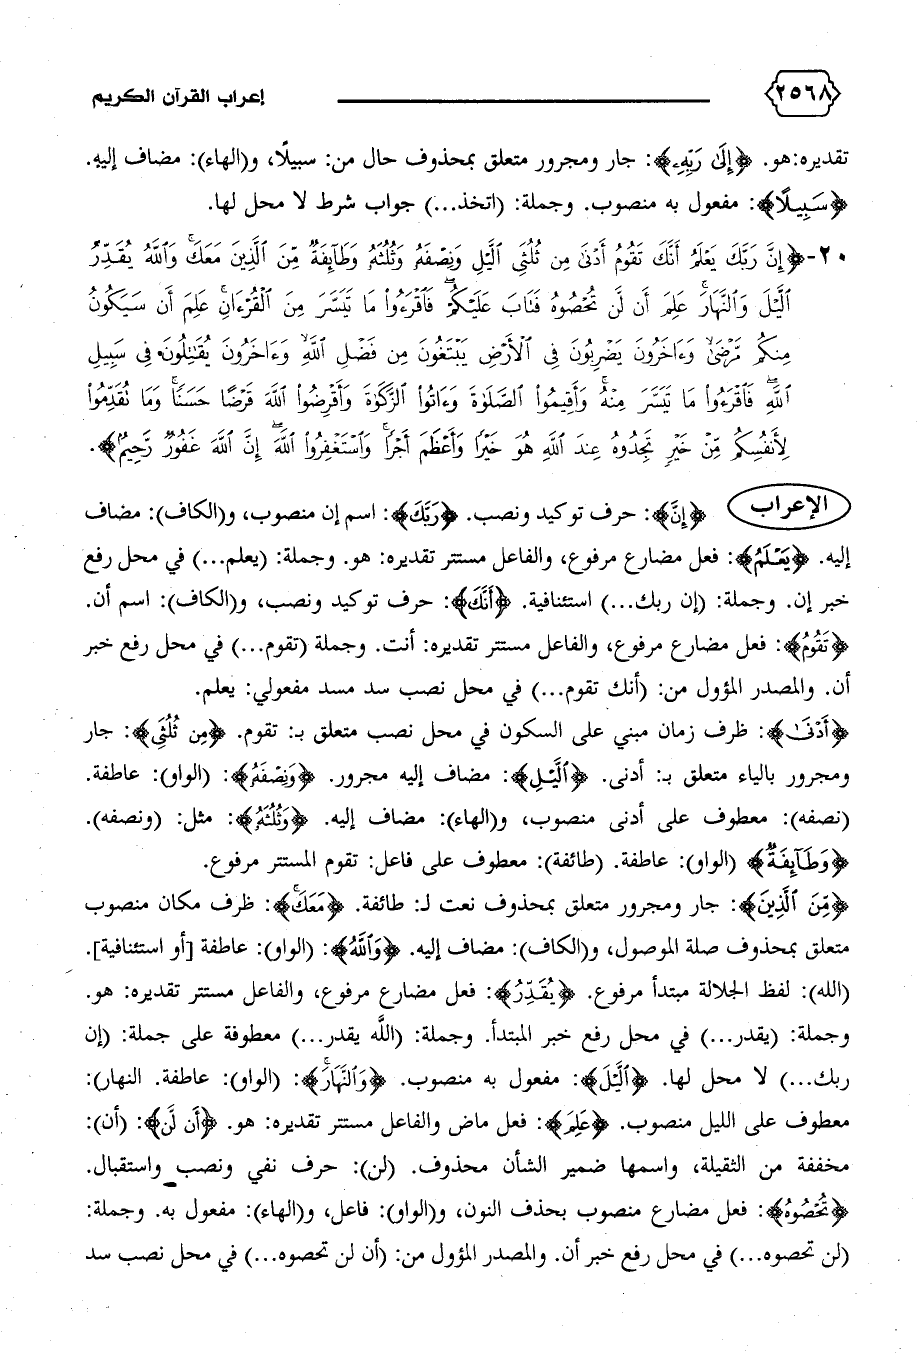 ٢٥٦٨ إعراب القرآن الكريم
تقديره:هو. ﴿إِلَىٰ رَبِّهِۦ﴾: جار ومجرور متعلق بمحذوف حال من: سبيلًا، و(الهاء): مضاف إليه.
﴿سَبِيلًا﴾: مفعول به منصوب. وجملة: (اتخذ...) جواب شرط لا محل لها.
٢٠-﴿إِنَّ رَبَّكَ يَعْلَمُ أَنَّكَ تَقُومُ أَدْنَىٰ مِن ثُلُثَىِ ٱلَّيْلِ وَنِصْفَهُۥ وَثُلُثَهُۥ وَطَآئِفَةٌ مِّنَ ٱلَّذِينَ مَعَكَ ۚ وَٱللَّهُ يُقَدِّرُ
ٱلَّيْلَ وَٱلنَّهَارَ ۚ عَلِمَ أَن لَّن تُحْصُوهُ فَتَابَ عَلَيْكُمْ ۖ فَٱقْرَءُوا۟ مَا تَيَسَّرَ مِنَ ٱلْقُرْءَانِ ۚ عَلِمَ أَن سَيَكُونُ
مِنكُم مَّرْضَىٰ ۙ وَءَاخَرُونَ يَضْرِبُونَ فِى ٱلْأَرْضِ يَبْتَغُونَ مِن فَضْلِ ٱللَّهِ ۙ وَءَاخَرُونَ يُقَٰتِلُونَ فِى سَبِيلِ
ٱللَّهِ ۖ فَٱقْرَءُوا۟ مَا تَيَسَّرَ مِنْهُ ۚ وَأَقِيمُوا۟ ٱلصَّلَوٰةَ وَءَاتُوا۟ ٱلزَّكَوٰةَ وَأَقْرِضُوا۟ ٱللَّهَ قَرْضًا حَسَنًا ۚ وَمَا تُقَدِّمُوا۟
لِأَنفُسِكُم مِّنْ خَيْرٍ تَجِدُوهُ عِندَ ٱللَّهِ هُوَ خَيْرًا وَأَعْظَمَ أَجْرًا ۚ وَٱسْتَغْفِرُوا۟ ٱللَّهَ ۖ إِنَّ ٱللَّهَ غَفُورٌ رَّحِيمٌۢ﴾.
الإعراب ﴿إِنَّ﴾: حرف توكيد ونصب. ﴿رَبَّكَ﴾: اسم إن منصوب، و(الكاف): مضاف
إليه. ﴿يَعْلَمُ﴾: فعل مضارع مرفوع، والفاعل مستتر تقديره: هو. وجملة: (يعلم...) في محل رفع
خبر إن. وجملة: (إن ربك...) استئنافية. ﴿أَنَّكَ﴾: حرف توكيد ونصب، و(الكاف): اسم أن.
﴿تَقُومُ﴾: فعل مضارع مرفوع، والفاعل مستتر تقديره: أنت. وجملة (تقوم...) في محل رفع خبر
أن. والمصدر المؤول من: (أنك تقوم...) في محل نصب سد مسد مفعولي: يعلم.
﴿أَدْنَىٰ﴾: ظرف زمان مبني على السكون في محل نصب متعلق بـ: تقوم. ﴿مِن ثُلُثَىِ﴾: جار
ومجرور بالياء متعلق بـ: أدنى. ﴿ٱلَّيْلِ﴾: مضاف إليه مجرور. ﴿وَنِصْفَهُۥ﴾: (الواو): عاطفة.
(نصفه): معطوف على أدنى منصوب، و(الهاء): مضاف إليه. ﴿وَثُلُثَهُۥ﴾: مثل: (ونصفه).
﴿وَطَآئِفَةٌ﴾ (الواو): عاطفة. (طائفة): معطوف على فاعل: تقوم المستتر مرفوع.
﴿مِّنَ ٱلَّذِينَ﴾: جار ومجرور متعلق بمحذوف نعت لـ: طائفة. ﴿مَعَكَ ۚ﴾: ظرف مكان منصوب
متعلق بمحذوف صلة الموصول، و(الكاف): مضاف إليه. ﴿وَٱللَّهُ﴾: (الواو): عاطفة [أو استئنافية].
(الله): لفظ الجلالة مبتدأ مرفوع. ﴿يُقَدِّرُ﴾: فعل مضارع مرفوع، والفاعل مستتر تقديره: هو.
وجملة: (يقدر...) في محل رفع خبر المبتدأ. وجملة: (اللَّه يقدر...) معطوفة على جملة: (إن
ربك...) لا محل لها. ﴿ٱلَّيْلَ﴾: مفعول به منصوب. ﴿وَٱلنَّهَارَ ۚ﴾: (الواو): عاطفة. النهار):
معطوف على الليل منصوب. ﴿عَلِمَ﴾: فعل ماض والفاعل مستتر تقديره: هو. ﴿أَن لَّن﴾: (أن):
مخففة من الثقيلة، واسمها ضمير الشأن محذوف. (لن): حرف نفي ونصب واستقبال.
﴿تُحْصُوهُ﴾: فعل مضارع منصوب بحذف النون، و(الواو): فاعل، و(الهاء): مفعول به. وجملة:
(لن تحصوه...) في محل رفع خبر أن. والمصدر المؤول من: (أن لن تحصوه...) في محل نصب سد